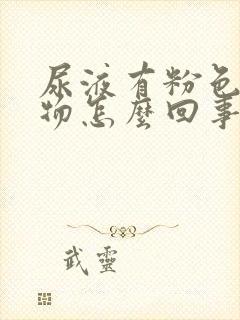 尿液有粉色
物怎麼回事
武靈